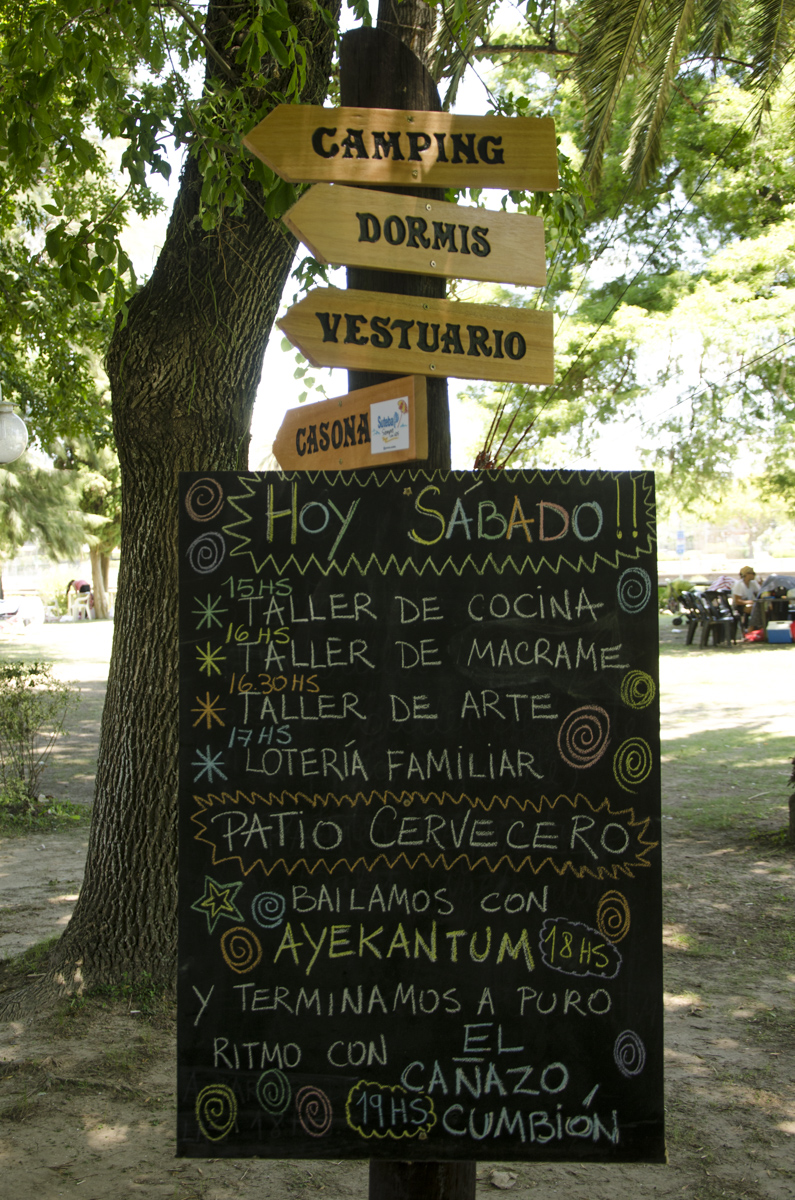 CAMPING
DORMIS
VESTUARIO
CASONA
Suteba
HOY SÁBADO!!
15HS
TALLER DE COCINA
16HS
TALLER DE MACRAME
16.30HS
TALLER DE ARTE
17HS
LOTERÍA FAMILIAR
PATIO CERVECERO
BAILAMOS CON
AYEKANTUM 18HS
Y TERMINAMOS A PURO
RITMO CON EL
CAÑAZO
19HS CUMBIÓN